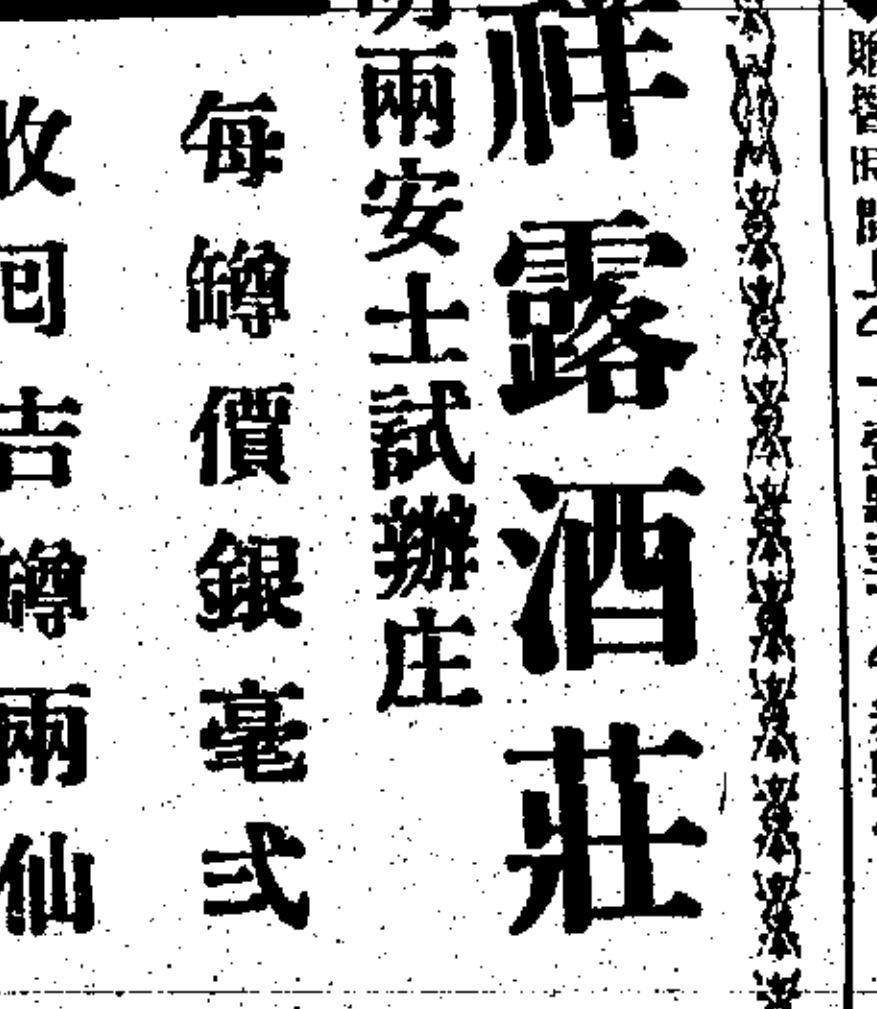 祥露酒莊
兩安士試辦庄
每罇價銀毫弍
收回吉罇兩仙